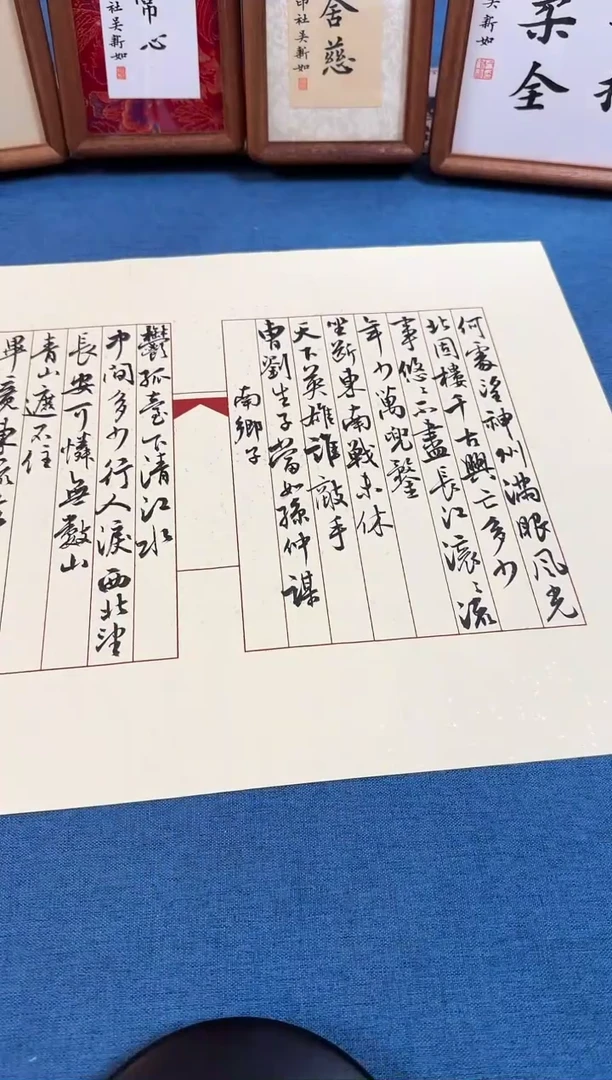 常心
社吴新如
舍慈
印社吴新如
吴新如
柔全
何處望神州滿眼風光
北固樓千古興亡多少
事悠〻不盡長江滚〻流
年少萬兜鍪
坐斷東南戰未休
天下英雄誰敵手
曹劉生子當如孫仲謀
南鄉子
鬱孤臺下清江水
中間多少行人淚西北望
長安可憐無數山
青山遮不住
畢竟東流去